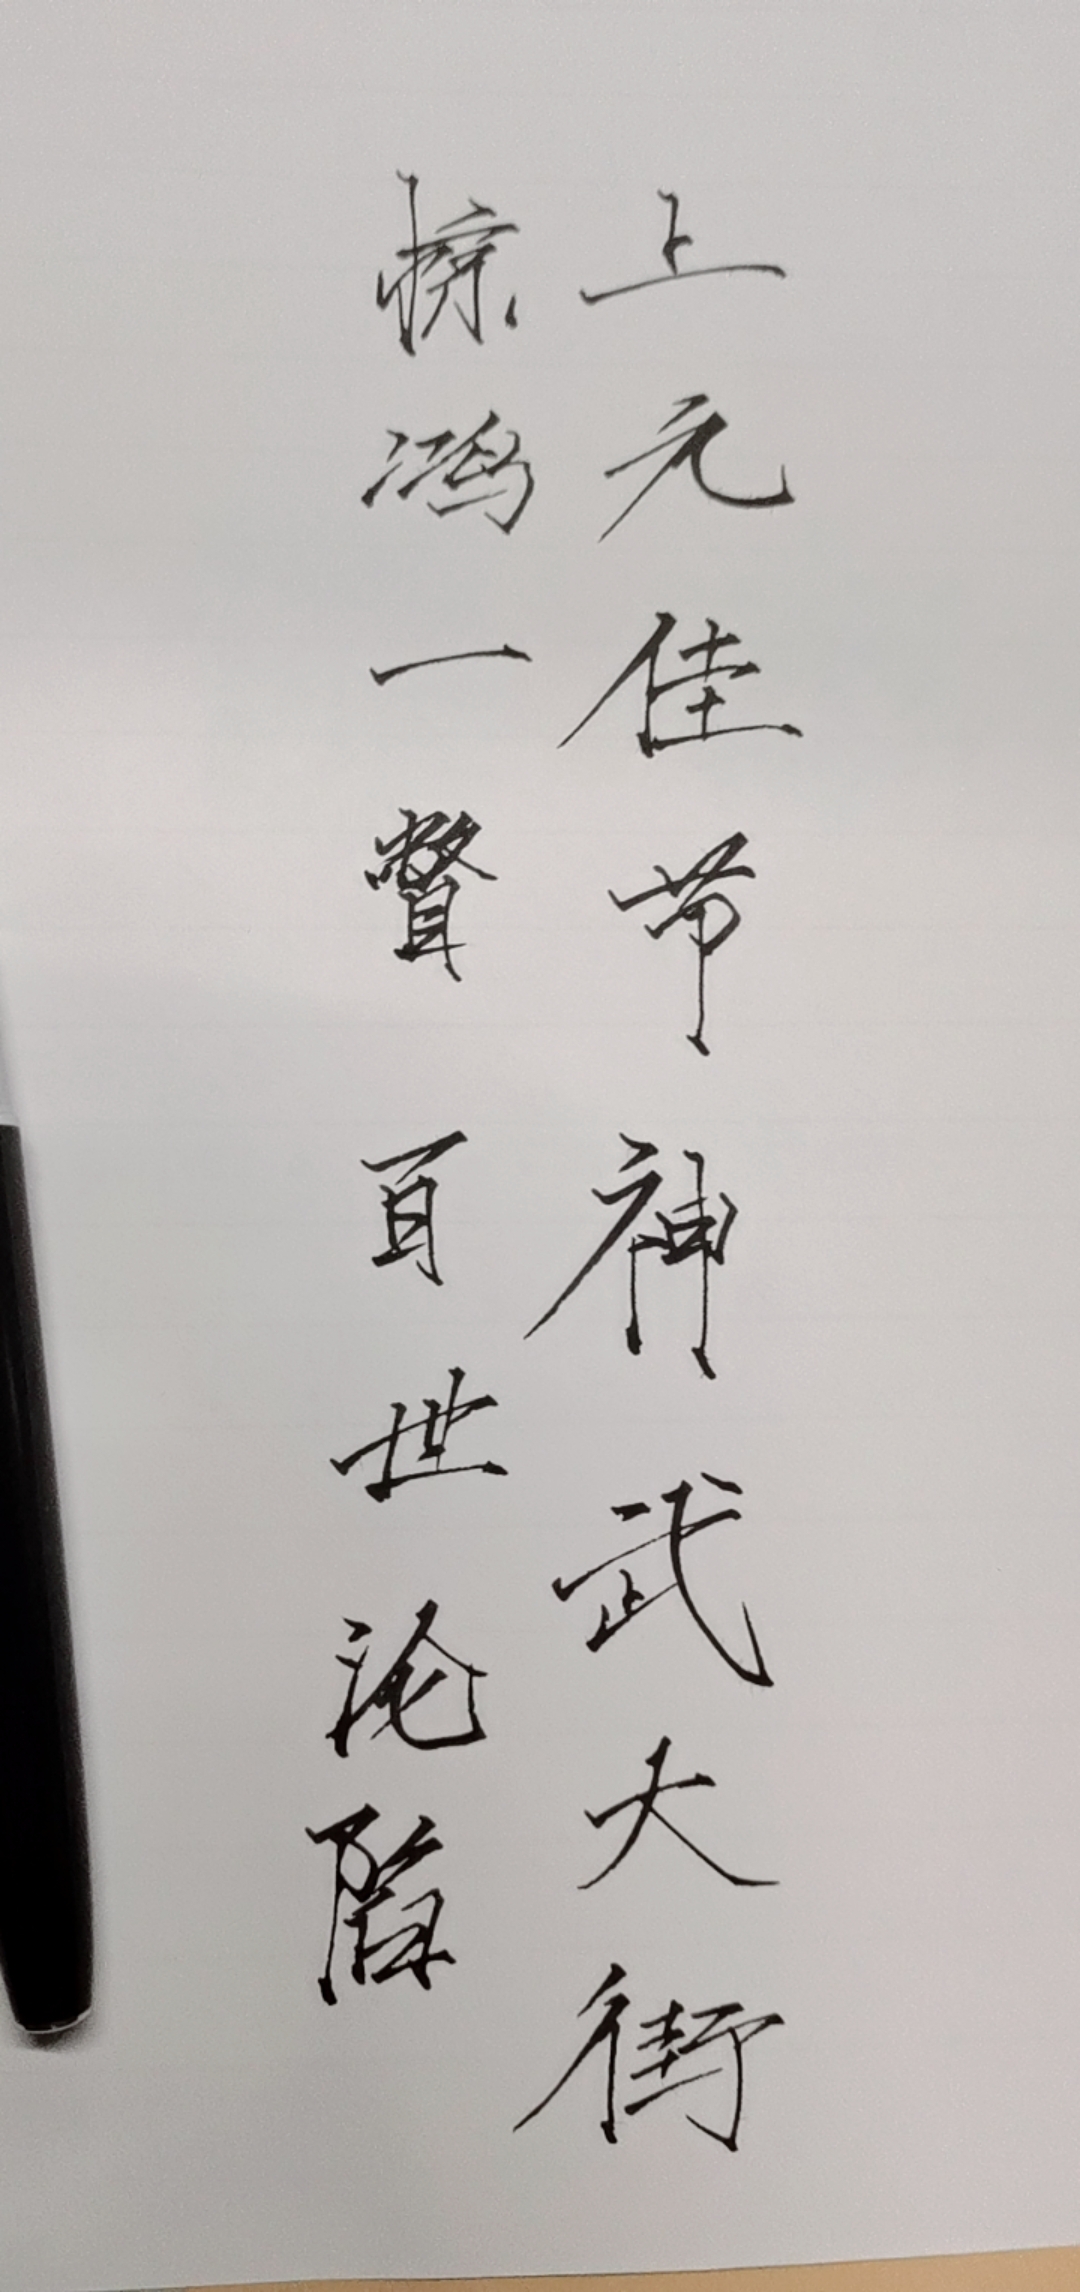 上元佳节神武大街
惊鸿一瞥百世沦陷